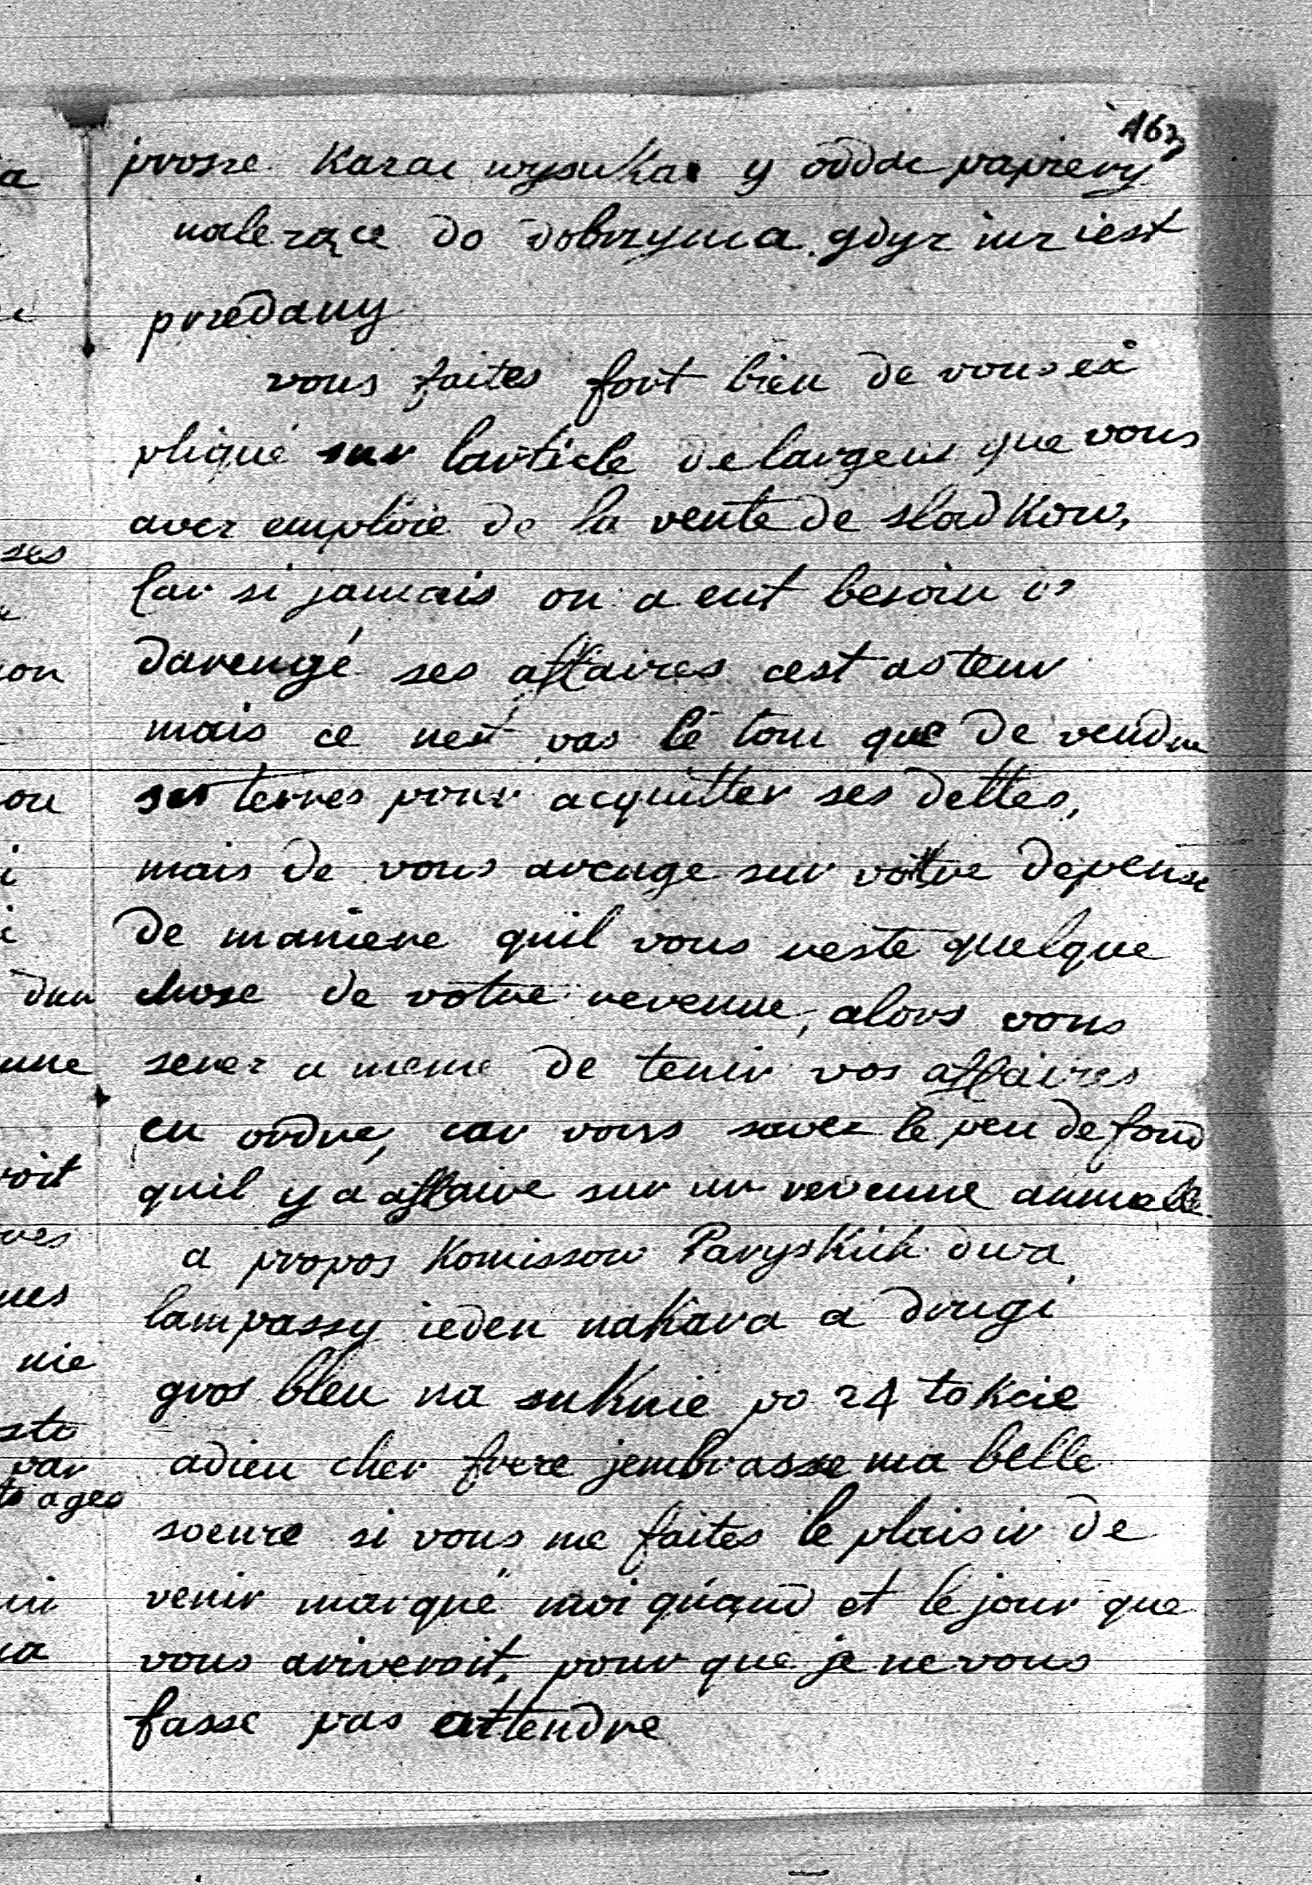 163
prosze kazac wyszukac y oddac papiery
nalezące do dobrzynia gdyz iuz iest
przedany
vous faites fort bien de vous ex
pliqué sur larticle de largens que vous
avez emploïe de la vente de sladkow,
Car si jamais on a eut besoin
darengé ses affaires cest asteur
mais ce nest pas le tout que de vendre
ses terres pour acquitter ses dettes,
mais de vous arenge sur votre depense
de maniere quil vous reste quelque
chose de votre revenue, alors vous
serez a meme de tenir vos affaires
en ordre, car vous savez le peu de fond
quil y a affaire sur un revenue annuelle
a propos Komissow Paryskich dwa
lampassy ieden nakara a drugi
gros bleu na suknie po 24 tokcie
adieu cher frere jembrasse ma belle
soeure si vous me faites le plaisir de
venir marqué moi quand et le jour que
vous ariveroit, pour que je ne vous
fasse pas attendre
ses
on
ou
i
dun
une
roit
ves
ues
nie
par
ages